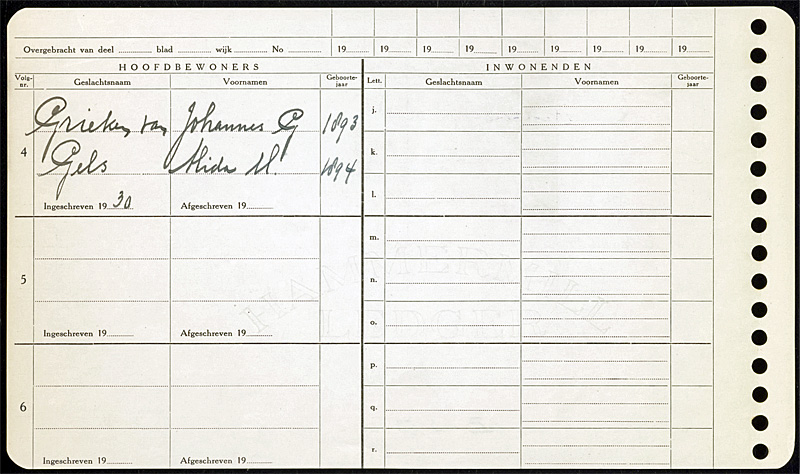 Overgebracht van deel blad wijk No 19 19 19 19 19 19 19 19
HOOFDBEWONERS
INWONENDEN
Volg-nr. Geslachtsnaam Voornamen Geboorte-jaar
Lett. Geslachtsnaam Voornamen Geboorte-jaar
4
Grieken van Johannes G 1893
Gels Alida M. 1894
Ingeschreven 1930 Afgeschreven 19
j.
k.
l.
5
Ingeschreven 19 Afgeschreven 19
m.
n.
o.
6
Ingeschreven 19 Afgeschreven 19
p.
q.
r.